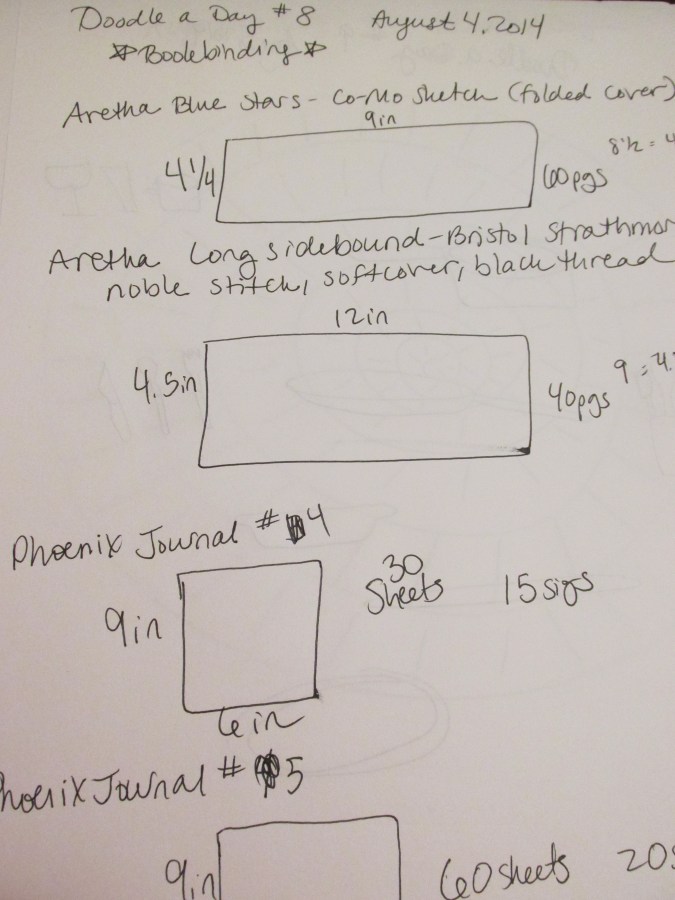 Doodle a Day #8 August 4, 2014
Bookbinding
Aretha Blue Stars - Co-Mo Sketch (folded cover)
9in
4 1/4 60pgs 8 1/2 = 4
Aretha Long sidebound - Bristol Strathmor
noble stitch, softcover, black thread
12in
4.5in 40pgs 9 = 4.
Phoenix Journal #4
9in 30 Sheets 15 sigs
6in
hoenix Journal #5
9in 60 sheets 20s